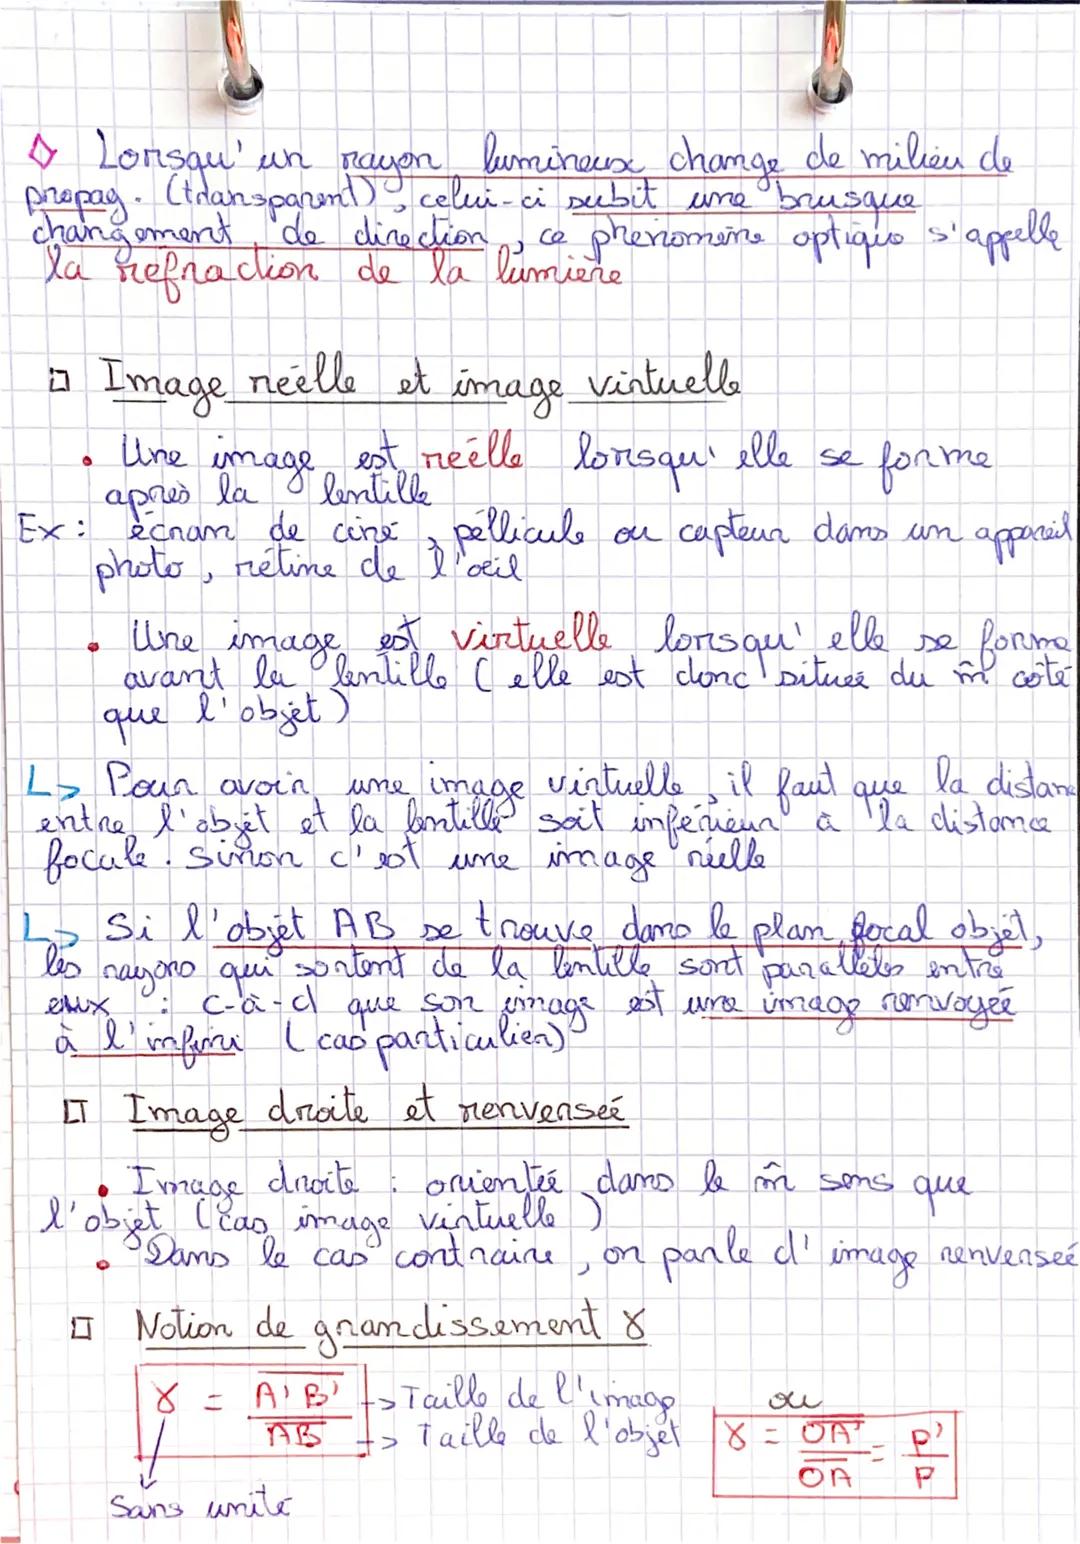 ◇ Lorsqu'un rayon lumineux change de milieu de
propag. (transparent), celui-ci subit une brusque
changement de direction, ce phénomène optique s'appelle
la réfraction de la lumière
□ Image réelle et image virtuelle
• Une image est réelle lorsqu'elle se forme
après la lentille
Ex : écran de ciné, péllicule ou capteur dans un appareil
photo, rétine de l'oeil
• Une image est virtuelle lorsqu'elle se forme
avant la lentille (elle est donc située du m̂ côté
que l'objet)
↳ Pour avoir une image virtuelle, il faut que la distance
entre l'objet et la lentille soit inférieur à la distance
focale. Sinon c'est une image réelle
↳ Si l'objet AB se trouve dans le plan focal objet,
les rayons qui sortent de la lentille sont parallèles entre
eux : c-à-d que son image est une image renvoyée
à l'infini (cas particulier)
□ Image droite et renversée
• Image droite : orientée dans le m̂ sens que
l'objet (cas image virtuelle)
• Dans le cas contraire, on parle d'image renversée
□ Notion de grandissement γ
γ = A'B' / AB -> Taille de l'image
-> Taille de l'objet
ou
γ = OA' / OA = P' / P
Sans unité